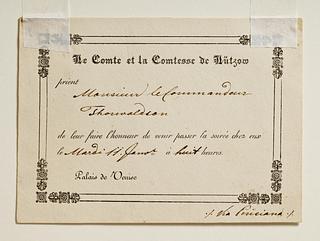 Le Comte et la Comtesse de Lützow
prient
Monsieur le Commandeur
Thorwaldson
de leur faire l'honneur de venir passer la soirée chez eux
le Mardi 11 Janvr à huit heures.
Palais de Venise